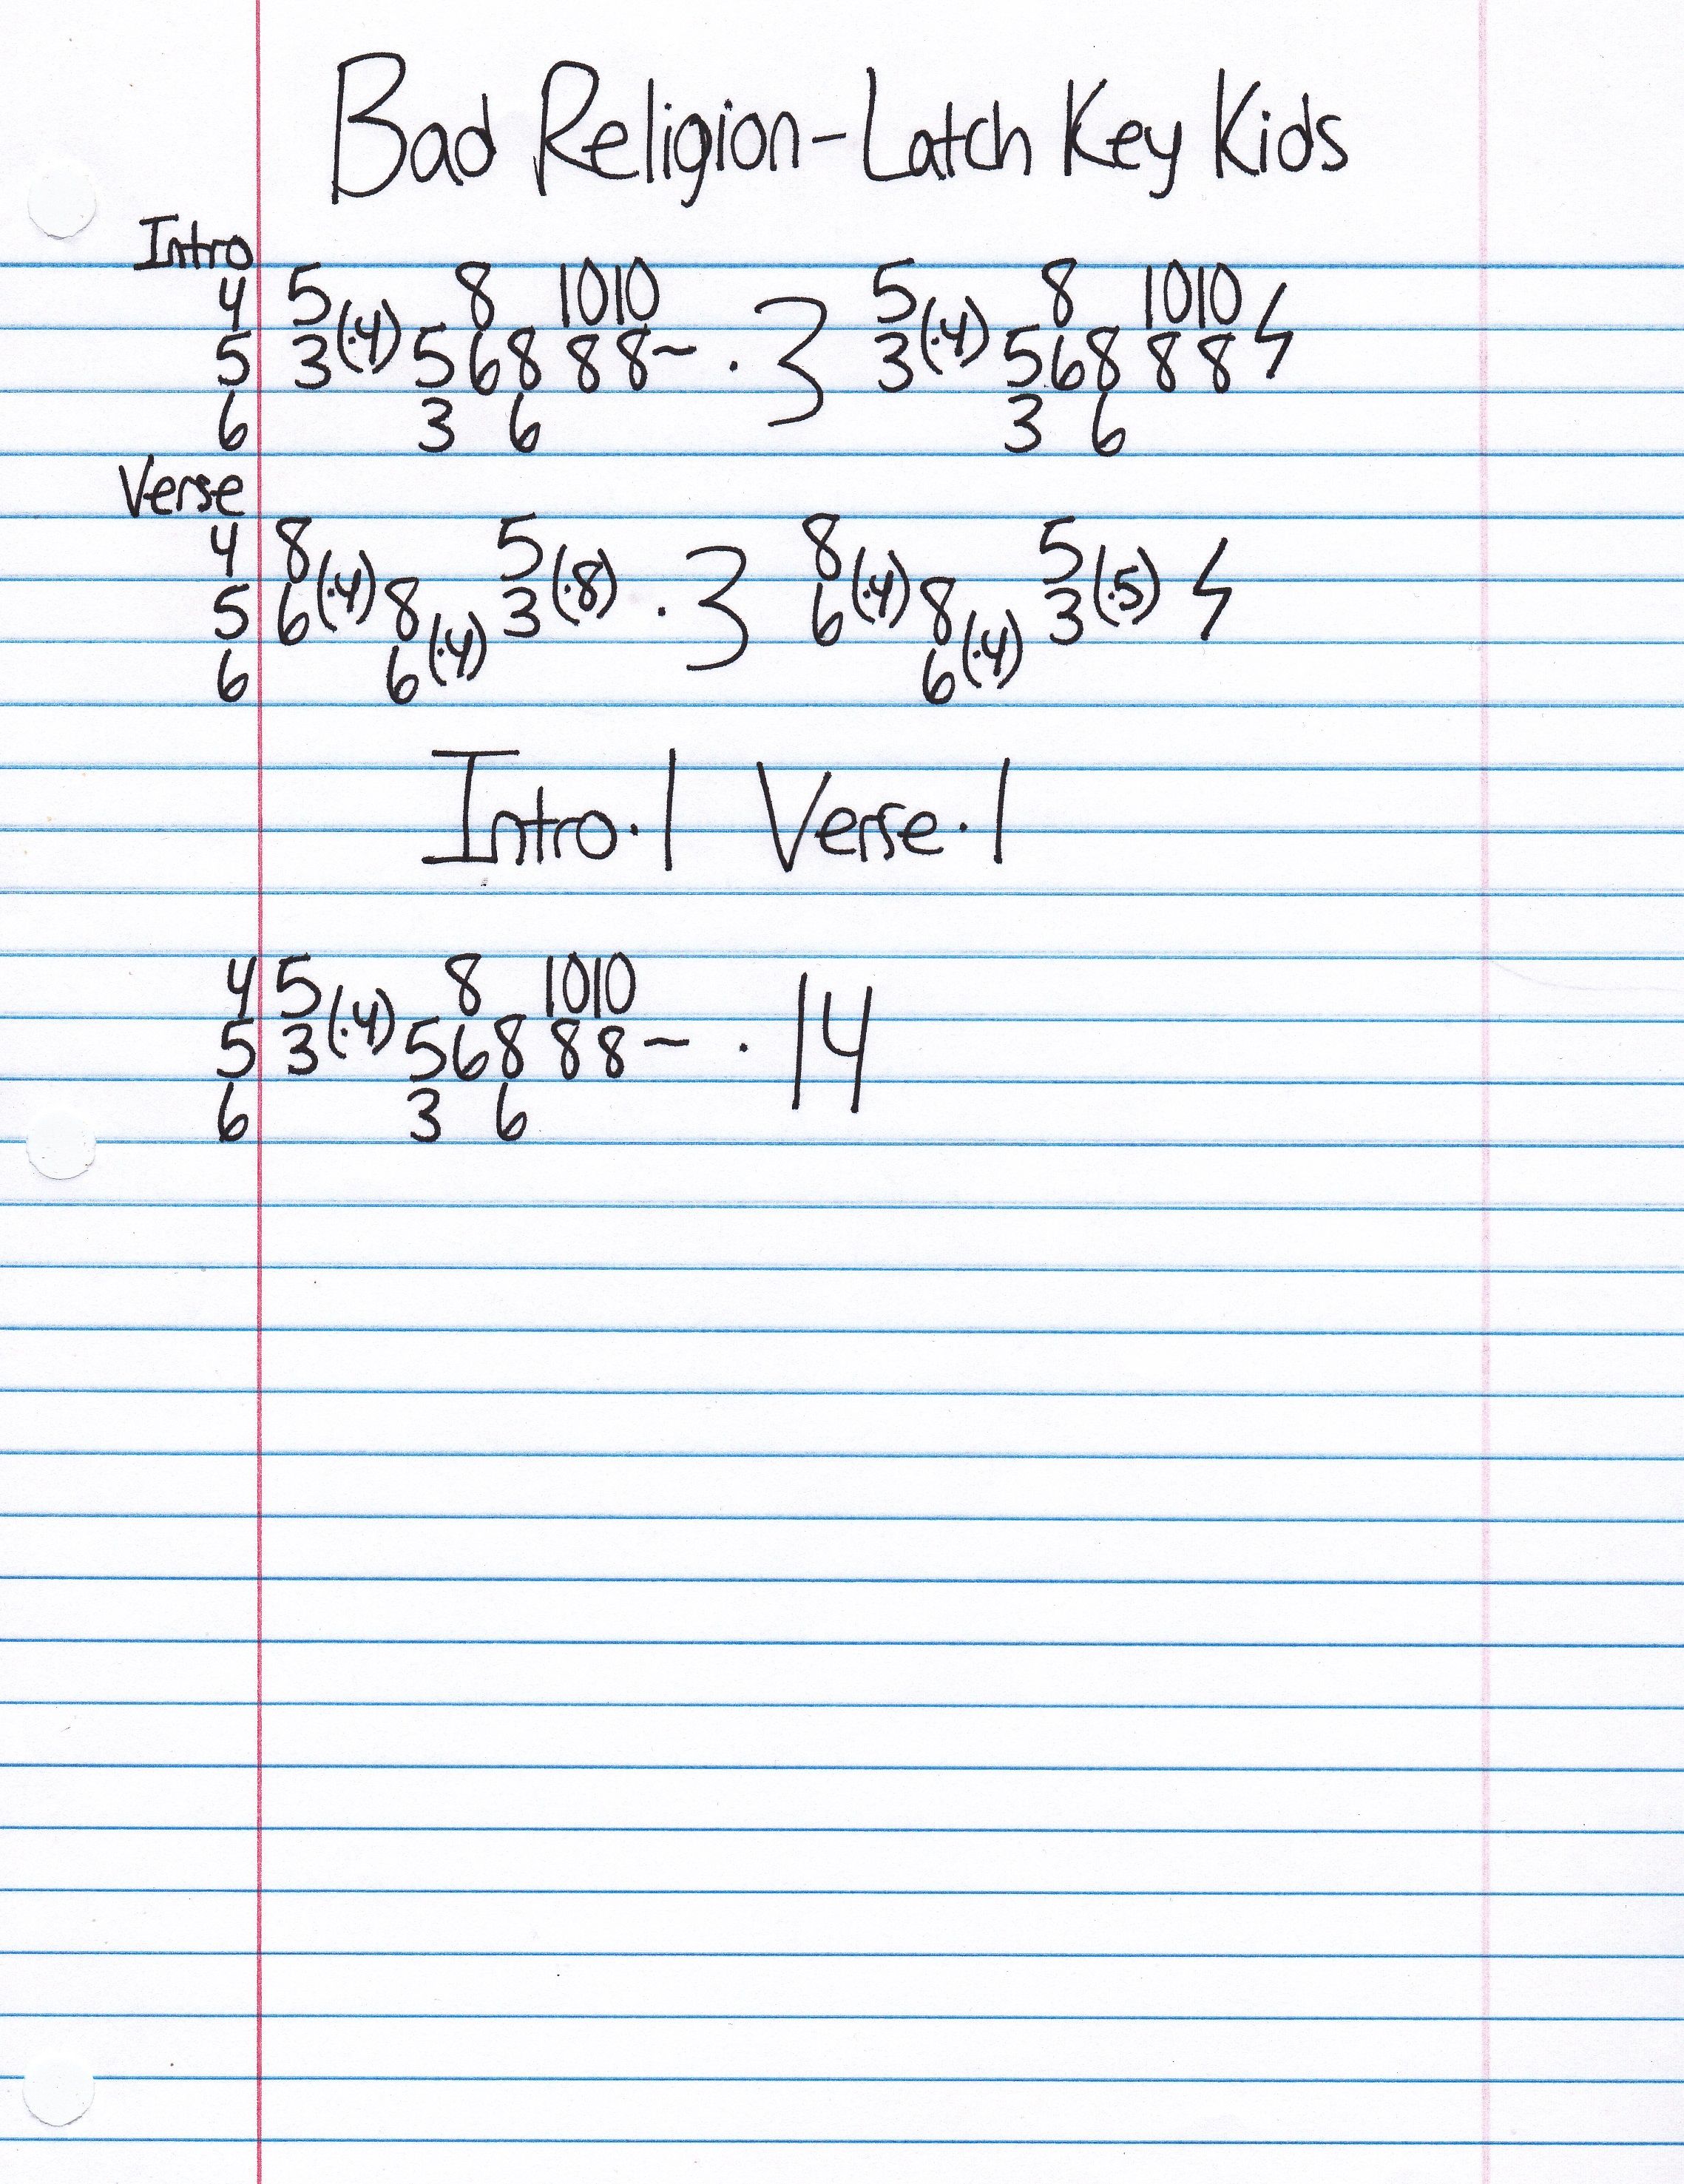 Bad Religion-Latch Key Kids
Intro
4 5 8 10 10 5 8 10 10
5 3 (·4) 5 6 8 8 8 ~ · 3 3 (·4) 5 6 8 8 8 ϟ
6 3 6 3 6
Verse
4 8 5 8 5
5 6 (·4) 8 3 (·8) · 3 6 (·4) 8 3 (·5) ϟ
6 6 (·4) 6 (·4)
Intro·1 Verse·1
4 5 8 10 10
5 3 (·4) 5 6 8 8 8 ~ · 14
6 3 6